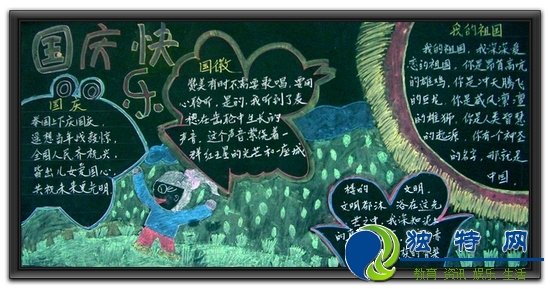 国庆快
乐
国庆
举国上下庆国庆,
遥想当年战鼓惊,
全国人民齐抗兴
赞出儿女爱国心,
共抗未来更光明
国徽
赞美有时不需要歌唱,要用
心聆听,是的,我听到了麦
穗在齿轮中生长的
声音,这个声音萦绕着一
群红五星的光芒和一座城
我的祖国
我的祖国,我深深爱
恋的祖国,你是昂首高吭
的雄鸡,你是冲天腾飞
的巨龙,你是威风凛凛
的雄狮,你是人类智慧
的起源,你有个神圣
的名字,那就是
中国.
楼的 文明,
文明都沐 浴在这光
芒之中,我深知泥土
独特网
教育 资讯 娱乐 生活